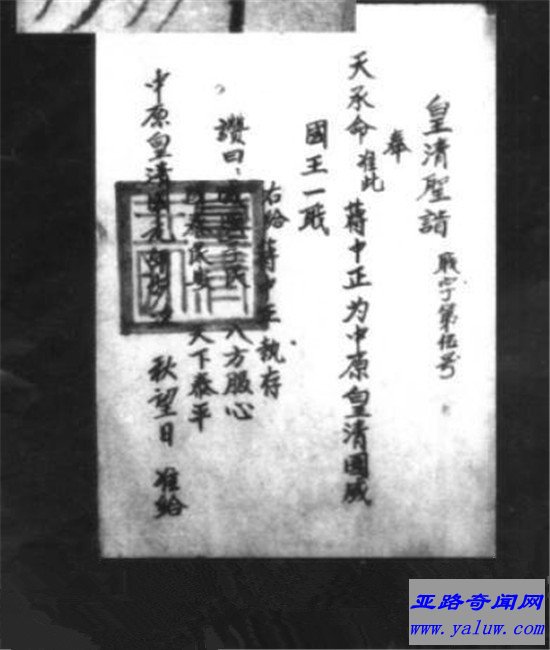 皇清聖諳 厰字第伍号
奉
天承命准此 蔣中正为中原皇清國威
國王一戢
右给蔣中正執存
讚曰：民 八方服心
民 天下泰平
中原皇清 秋望日 准給
亚路奇闻网
www.yaluw.com